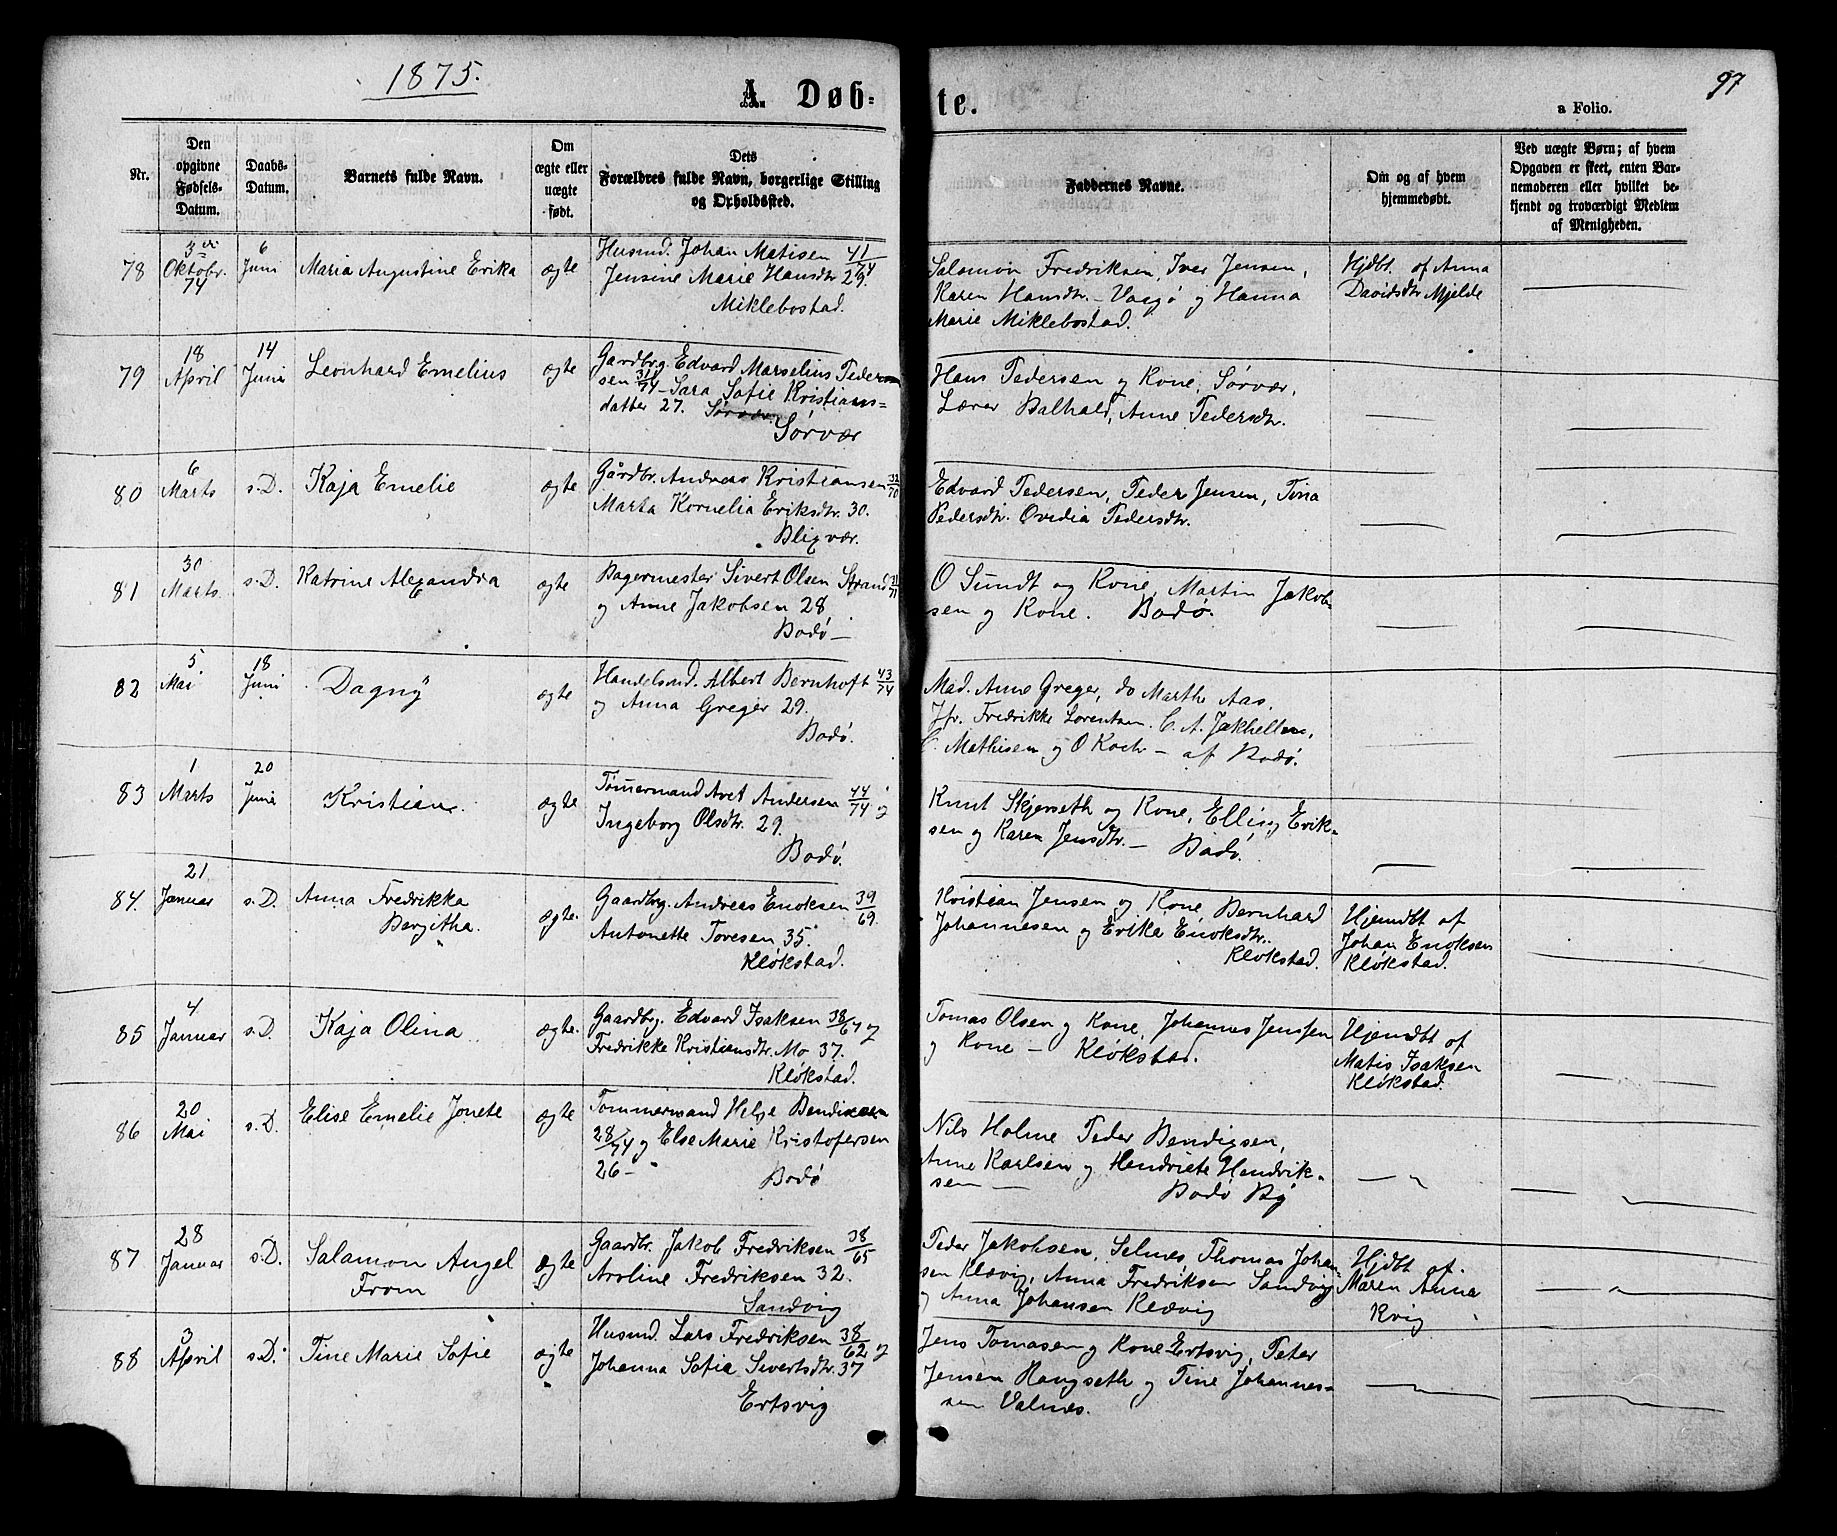 1875.
A. Døb-
te.
97
a Folio.
Nr.
Den opgivne Fødsels-Datum.
Daabs-Datum.
Barnets fulde Navn.
Om ægte eller uægte født.
Dets Forældres fulde Navn, borgerlige Stilling og Opholdssted.
Faddernes Navne.
Om og af hvem hjemmedøbt.
Ved uægte Børn; af hvem Opgaven er skeet, enten Barnemoderen eller hvilket bekjendt og troværdigt Medlem af Menigheden.
78
3die Oktobr. 74
6 Juni
Maria Augustine Erika
ægte
Husmd. Johan Matisen 41/74
Jensine Marie Hansdtr 29.
Miklebostad.
Salamon Fredriksen, Iver Jensen,
Karen Hansdtr. – Vaagø og Hanna
Marie Miklebostad.
Hjdbt. af Anna
Davidsdtr Mjelde
79
18 April
14 Juni
Leonhard Emelius
ægte
Gardbrg. Edvard Marselius Peder
sen 31/74 – Sara Sofie Kristians=
datter 27.
Sørvær
Hans Pedersen og Kone, Sørvær,
Lærer Balhald, Anne Pedersdtr.
80
6 Marts
s.D.
Kaja Emelie
ægte
Gårdbr. Andreas Kristiansen 32/70
Marta Kornelia Eriksdtr. 30.
Blixvær.
Edvard Pedersen, Peder Jensen, Tina
Pedersdtr. Ovidia Pedersdtr.
81
30 Marts.
s.D.
Katrine Alexandra
ægte
Bagermester Sivert Olsen Strand 31/71
og Anne Jakobsen 28
Bodø –
O Sundt og Kone, Martin Jakob-
sen og Kone. Bodø.
82
5 Mai
18 Juni
Dagny
ægte
Handelsmd. Albert Bernhoft 43/74
og Anna Greger 29.
Bodø.
Mad. Anne Greger, do Marthe Aas,
Jfr. Fredrikke Lorentzen. C. A. Jakhellen,
C. Mathisen og O Koch – af Bodø.
83
1 Marts
20 Juni
Kristian
ægte
Tømermand Avet Andersen 44/74 og
Ingeborg Olsdtr. 29.
Bodø.
Knut Skjerseth og Kone, Elling Erik-
sen og Karen Jensdtr. – Bodø.
84.
21 Januar
s.D.
Anna Fredrikka
Bergitha.
ægte.
Gaardbrg. Andreas Enoksen 39/69.
Antonette Toresen 35.
Kløkstad.
Kristian Jensen og Kone, Bernhard
Johannesen og Erika Enoksdtr.
Kløkstad.
Hjemdbt af
Johan Enoksen
Kløkstad.
85
4 Januar
s.D.
Kaja Olina
ægte.
Gaardbrg. Edvard Isaksen 38/67 og
Fredrikke Kristiansdtr. Mo 37.
Kløkstad.
Tomas Olsen og Kone, Johannes Jensen
og Kone – Kløkstad.
Hjemdbt af
Matis Isaksen
Kløkstad.
86
20 Mai
s.D.
Elise Emelie Jonete
ægte
Tømmermand Helge Bendixsen
28/74 og Else Marie Kristofersen
26 –
Bodø
Nils Holme Peder Bendigsen,
Anne Karlsen og Hendriete Hendrik-
sen –
Bodø By
87
28 Januar
s.D.
Salamon Angel
From
ægte
Gaardbr. Jakob Fredriksen 38/65
Aroline Fredriksen 32.
Sandvig
Peder Jakobsen, Selnes, Thomas Johan-
sen Kløvig, Anna Fredriksen Sandvig
og Anna Johansen Kløvig
Hjdbt af.
Maren Anna
Kvig
88
3 April
s.D.
Tine Marie Sofie
ægte
Husmd. Lars Fredriksen 38/62 og
Johanna Sofia Sivertsdtr. 37
Ertsvig
Jens Tomasen og Kone Ertsvig, Peter
Jensen Hangseth og Tine Johannes-
sen Valnes.